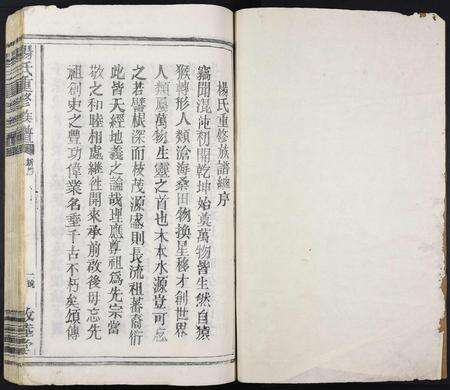 楊氏重修族譜總序
竊聞混沌初開乾坤始奠萬物皆生然自猿
猴轉形人類滄海桑田物換星移才創世界
人類屬萬物生靈之首也木本水源豈可忘
之若譬樹深而枝茂源盛則長流祖蕃裔衍
此皆天經地義之論哉理應尊祖為先宗當
敬之和睦相處繼往開來承前啟後毋忘先
祖創史之豐功偉業名垂千古不朽矣頌傳
楊氏重修族譜